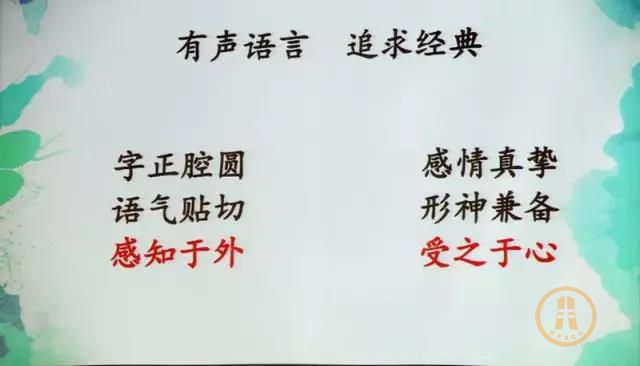 有声语言 追求经典
字正腔圆 感情真挚
语气贴切 形神兼备
感知于外 受之于心